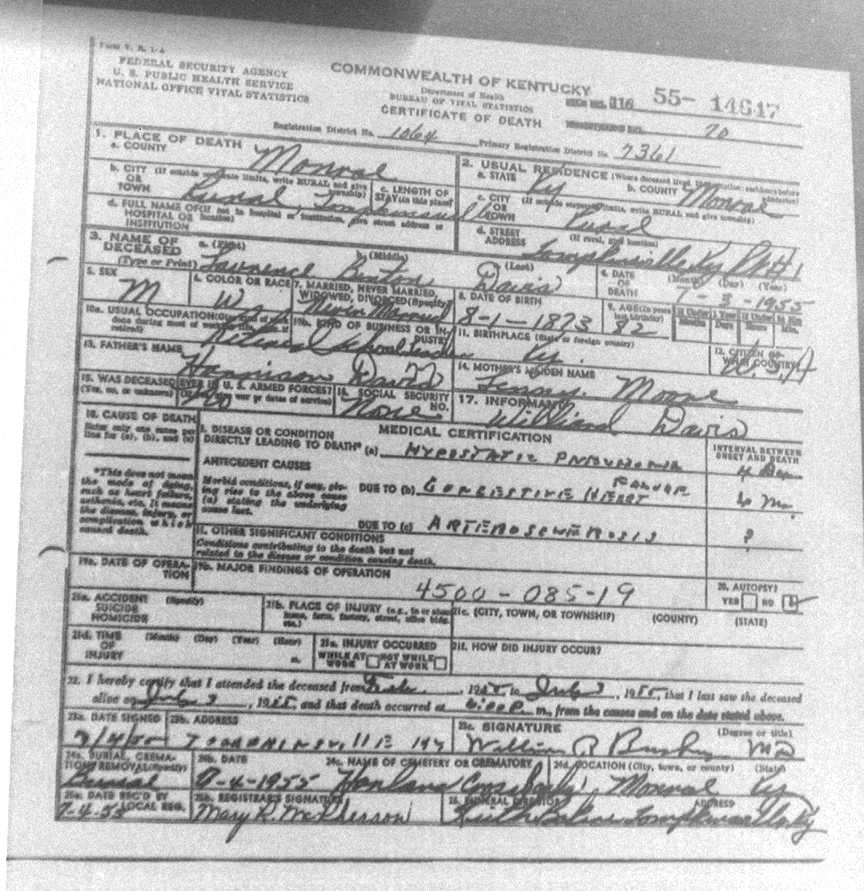 Form V. S. 1-A
FEDERAL SECURITY AGENCY
U. S. PUBLIC HEALTH SERVICE
NATIONAL OFFICE VITAL STATISTICS
COMMONWEALTH OF KENTUCKY
Department of Health
BUREAU OF VITAL STATISTICS
CERTIFICATE OF DEATH
116 55- 14647
Registration District No. 1064 Primary Registration District No. 7361
70
1. PLACE OF DEATH
a. COUNTY Monroe
b. CITY (If outside corporate limits, write RURAL and give township)
OR
TOWN Rural, Tompkinsville
c. LENGTH OF STAY (in this place)
d. FULL NAME OF (If not in hospital or institution, give street address or location)
HOSPITAL OR
INSTITUTION
2. USUAL RESIDENCE (Where deceased lived.
a. STATE Ky b. COUNTY Monroe
c. CITY (If outside corporate limits, write RURAL and give township)
OR
TOWN Rural
d. STREET (If rural, give location)
ADDRESS Tompkinsville Ky Rt # 1
3. NAME OF DECEASED
(Type or Print)
a. (First) Lawrence b. (Middle) Benton (Last) Davis
4. DATE OF DEATH (Month) (Day) (Year) 7-3-1955
5. SEX M
6. COLOR OR RACE W
7. MARRIED, NEVER MARRIED, WIDOWED, DIVORCED (Specify) Never Married
8. DATE OF BIRTH 8-1-1873
9. AGE (In years last birthday) 82
If Under 1 Year Months Days
If Under 24 Hrs Hours Min.
10a. USUAL OCCUPATION Retired School Teacher
10b. KIND OF BUSINESS OR INDUSTRY
11. BIRTHPLACE (State or foreign country) Ky.
12. CITIZEN OF WHAT COUNTRY? U.S.A
13. FATHER'S NAME Harrison Davis
14. MOTHER'S MAIDEN NAME Moore
15. WAS DECEASED EVER IN U. S. ARMED FORCES?
(Yes, no, or unknown) (If yes, give war or dates of service)
No
16. SOCIAL SECURITY NO. None
17. INFORMANT William Davis
18. CAUSE OF DEATH
Enter only one cause per
line for (a), (b), and (c)
*This does not mean
the mode of dying,
such as heart failure,
asthenia, etc. It means
the disease, injury, or
complication which
caused death.
MEDICAL CERTIFICATION
INTERVAL BETWEEN
ONSET AND DEATH
I. DISEASE OR CONDITION
DIRECTLY LEADING TO DEATH* (a) HYPOSTATIC PNEUMONIA 4 Da
ANTECEDENT CAUSES
Morbid conditions, if any, giving rise to the above cause (a) stating the underlying cause last.
DUE TO (b) CONGESTIVE HEART FAILURE 6 Mo
DUE TO (c) ARTEROSCLEROSIS ?
II. OTHER SIGNIFICANT CONDITIONS
Conditions contributing to the death but not
related to the disease or condition causing death.
19a. DATE OF OPERATION
19b. MAJOR FINDINGS OF OPERATION
4500-085-19
20. AUTOPSY?
YES NO
21a. ACCIDENT SUICIDE HOMICIDE (Specify)
21b. PLACE OF INJURY (e.g., in or about home, farm, factory, street, office bldg. etc.)
21c. (CITY, TOWN, OR TOWNSHIP) (COUNTY) (STATE)
21d. TIME OF INJURY (Month) (Day) (Year) (Hour) m.
21e. INJURY OCCURRED
WHILE AT WORK NOT WHILE AT WORK
21f. HOW DID INJURY OCCUR?
22. I hereby certify that I attended the deceased from Feb, 1955 to July 3, 1955, that I last saw the deceased
alive on July 3, 1955 and that death occurred at m., from the causes and on the date stated above.
23a. DATE SIGNED 7/4/55
23b. ADDRESS TOMPKINSVILLE KY
23c. SIGNATURE (Degree or title) William R Bushy MD
24a. BURIAL, CREMATION, REMOVAL (Specify) Burial
24b. DATE 7-4-1955
24c. NAME OF CEMETERY OR CREMATORY
24d. LOCATION (City, town, or county) (State) Monroe Ky
25a. DATE REC'D BY LOCAL REG. 7-4-55
25b. REGISTRAR'S SIGNATURE Mary R. McPherson
26. FUNERAL DIRECTOR ADDRESS
Tompkinsville Ky